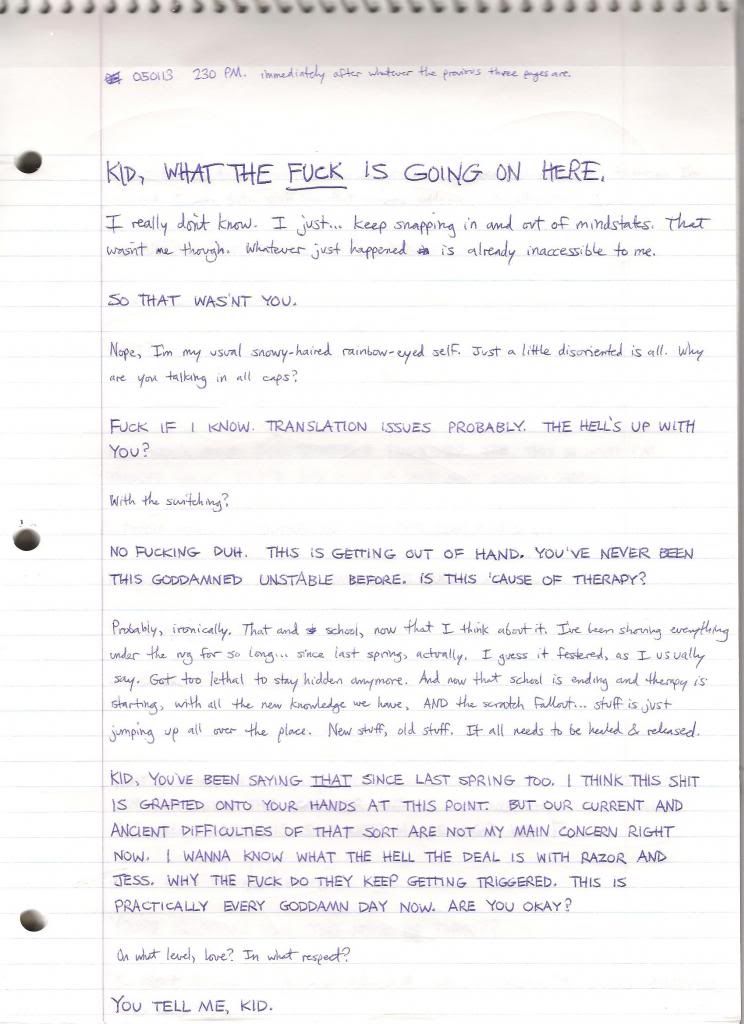 050113 230 PM. immediately after whatever the previous three pages are.
KID, WHAT THE FUCK IS GOING ON HERE.
I really don't know. I just... keep snapping in and out of mindstates. That
wasn't me though. Whatever just happened is already inaccessible to me.
SO THAT WASN'T YOU.
Nope, I'm my usual snowy-haired rainbow-eyed self. Just a little disoriented is all. Why
are you talking in all caps?
FUCK IF I KNOW. TRANSLATION ISSUES PROBABLY. THE HELL'S UP WITH
YOU?
With the switching?
NO FUCKING DUH. THIS IS GETTING OUT OF HAND. YOU'VE NEVER BEEN
THIS GODDAMNED UNSTABLE BEFORE. IS THIS 'CAUSE OF THERAPY?
Probably, ironically. That and school, now that I think about it. I've been shoving everything
under the rug for so long... since last spring, actually. I guess it festered, as I usually
say. Got too lethal to stay hidden anymore. And now that school is ending and therapy is
starting, with all the new knowledge we have, AND the scratch fallout... stuff is just
jumping up all over the place. New stuff, old stuff. It all needs to be healed & released.
KID, YOU'VE BEEN SAYING THAT SINCE LAST SPRING TOO. I THINK THIS SHIT
IS GRAFTED ONTO YOUR HANDS AT THIS POINT. BUT OUR CURRENT AND
ANCIENT DIFFICULTIES OF THAT SORT ARE NOT MY MAIN CONCERN RIGHT
NOW. I WANNA KNOW WHAT THE HELL THE DEAL IS WITH RAZOR AND
JESS. WHY THE FUCK DO THEY KEEP GETTING TRIGGERED. THIS IS
PRACTICALLY EVERY GODDAMN DAY NOW. ARE YOU OKAY?
On what level, love? In what respect?
YOU TELL ME, KID.